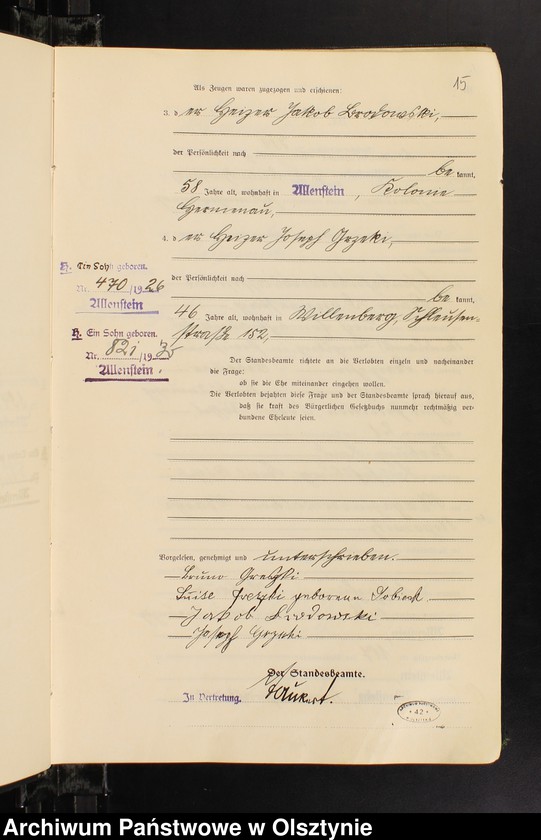 15
Als Zeugen waren zugezogen und erschienen:
3. der Heizer Jakob Brodowski,
der Persönlichkeit nach
be kannt,
58 Jahre alt, wohnhaft in Allenstein, Kolonie
Hermenau,
4. der Heizer Joseph Grzeki,
der Persönlichkeit nach
be kannt,
46 Jahre alt, wohnhaft in Willenberg, Schleusen-
straße 152.
H. Ein Sohn geboren.
Nr. 470/1926
Allenstein
H. Ein Sohn geboren.
Nr. 821/19
Allenstein.
Der Standesbeamte richtete an die Verlobten einzeln und nacheinander
die Frage:
ob sie die Ehe miteinander eingehen wollen.
Die Verlobten bejahten diese Frage und der Standesbeamte sprach hierauf aus,
daß sie kraft des Bürgerlichen Gesetzbuchs nunmehr rechtmäßig ver-
bundene Eheleute seien.
Vorgelesen, genehmigt und unterschrieben.
Bruno
Luise geborene
Jakob Brodowski
Joseph Grzeki
Der Standesbeamte.
In Vertretung.
42
Archiwum Państwowe w Olsztynie